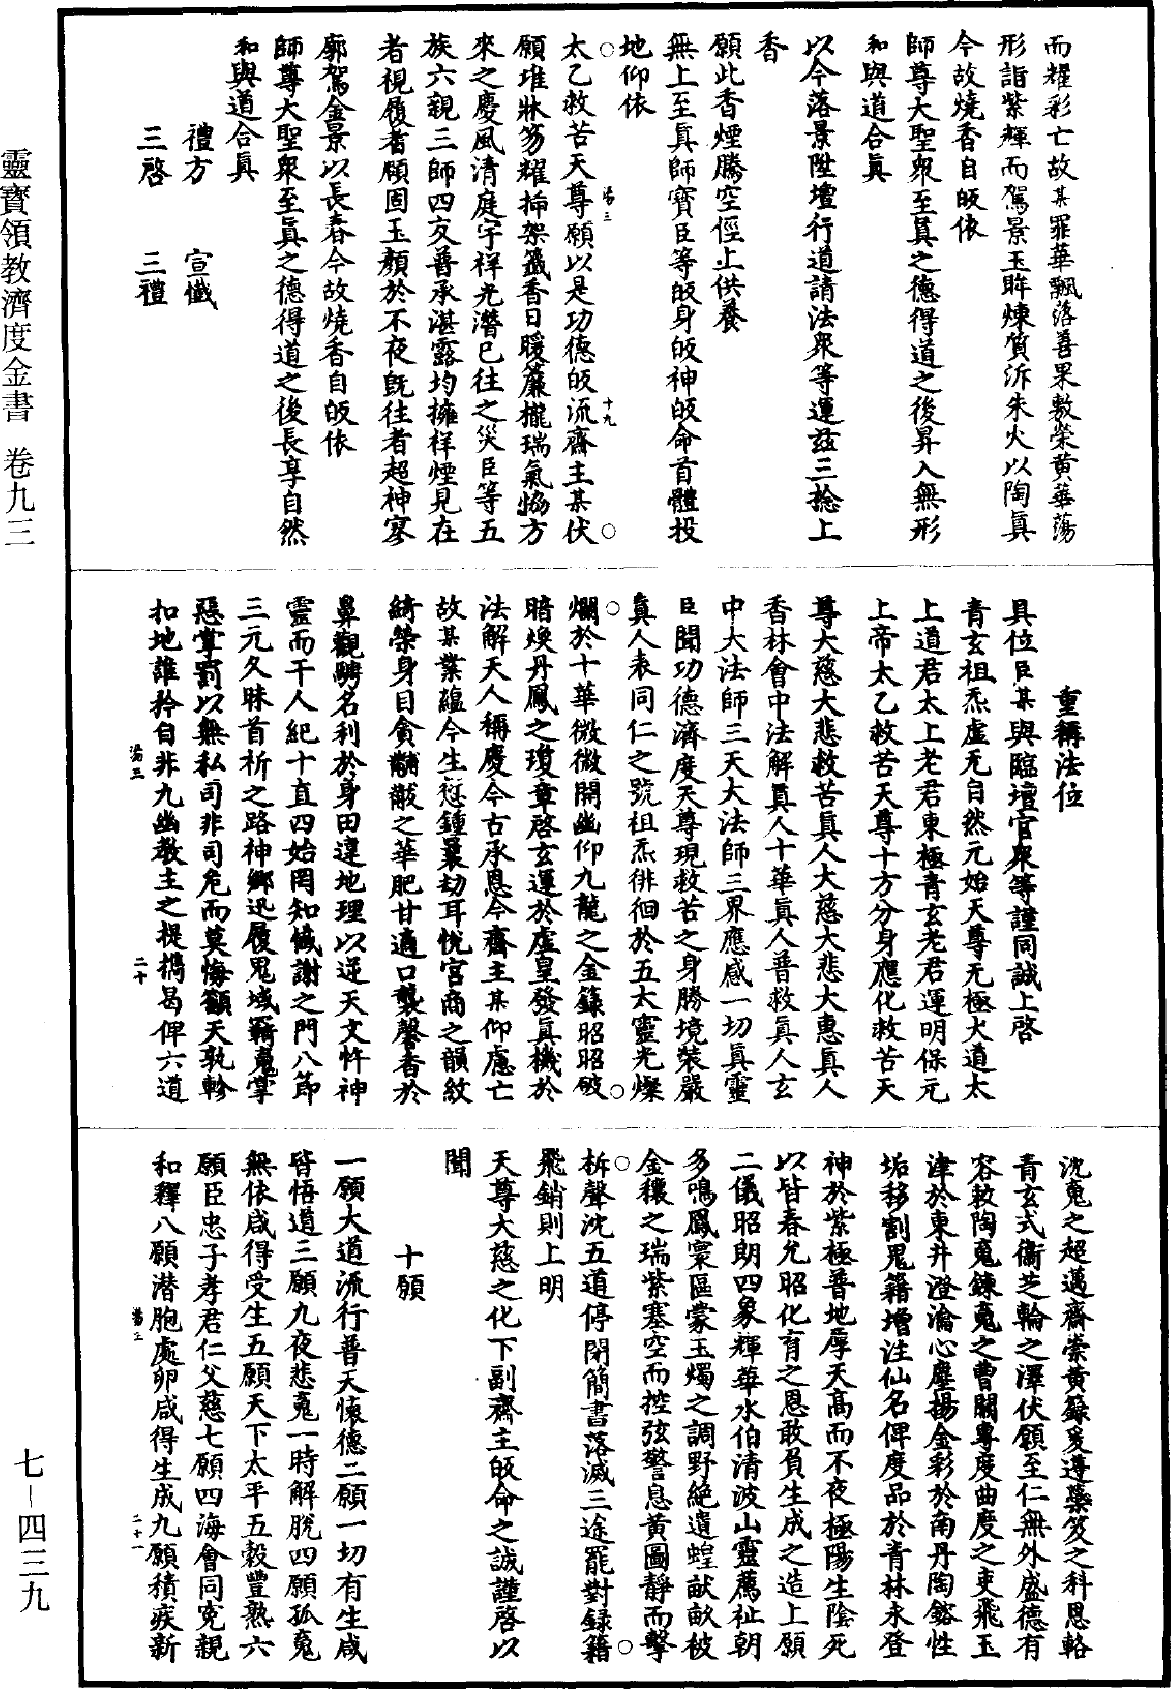 而耀彩亡故某罪華飄落善果敷榮黄華蕩
形詣紫輝而駕景玉眸煉質泝朱火以陶眞
今故燒香自皈依
師尊大聖衆至眞之德得道之後昇入無形
和與道合眞
以今落景陞壇行道請法衆等運兹三捻上
香
願此香煙騰空徑上供養
無上至眞師寳臣等皈身皈神皈命首體投
地仰依
太乙救苦天尊願以是功德皈流齋主某伏
願堆牀笏耀揷架籤香日暖簾櫳瑞氣恊方
來之慶風清庭宇祥光潛已往之災臣等五
族六親三師四友普承湛露均擁祥煙見在
者視履耆頤固玉顏於不夜旣往者超神寥
廓駕金景以長春今故燒香自皈依
師尊大聖衆至眞之德得道之後長享自然
和與道合眞
禮方 宣懴
三啓 三禮
重稱法位
具位臣某與臨壇官衆等謹同誠上啓
青玄祖炁虛无自然元始天尊无極大道太
上道君太上老君東極青玄老君運明保元
上帝太乙救苦天尊十方分身應化救苦天
尊大慈大悲救苦眞人大慈大悲大惠眞人
香林會中法解眞人十華眞人普救眞人玄
中大法師三天大法師三界應感一切眞靈
臣聞功德濟度天尊現救苦之身勝境裝嚴
眞人表同仁之號祖炁徘徊於五太靈光燦
爛於十華微微開幽仰九龍之金籙昭昭破
暗煥丹鳳之瓊章啓玄運於虛皇發眞機於
法解天人稱慶今古承恩今齋主某仰慮亡
故某業藴今生愆鍾曩劫耳悦宮商之韻紋
綺榮身目貪黼黻之華肥甘適口襲馨香於
鼻觀騁名利於身田違地理以逆天文忤神
靈而干人紀十直四始罔知懴謝之門八節
三元久昧首祈之路神鄉迅履鬼域覊䰟掌
惡掌罰以無私司非司危而莫悔籲天孰軫
扣地誰矜自非九幽教主之提攜曷俾六道
沈䰟之超邁齋崇黄籙爰遵蘂笈之科恩輅
青玄式衞芝輪之澤伏願至仁無外盛德有
容敕陶䰟鍊䰟之曹關專度曲度之吏飛玉
津於東井澄瀹心塵揚金彩於南丹陶鎔性
垢移割鬼籍增注仙名俾度品於青林永登
神於紫極普地厚天高而不夜極陽生陰死
以皆春允昭化育之恩敢負生成之造上願
二儀昭朗四象輝華水伯清波山靈薦祉朝
多鳴鳳寰區蒙玉燭之調野絶遺蝗畎畝被
金穰之瑞紫塞空而控弦警息黄圖靜而擊
柝聲沈五道停閉簡書落滅三途罷對錄籍
飛銷則上明
天尊大慈之化下副齋主皈命之誠謹啓以
聞
十願
一願大道流行普天懷德二願一切有生咸
皆悟道三願九夜悲䰟一時解脫四願孤䰟
無依咸得受生五願天下太平五穀豐熟六
願臣忠子孝君仁父慈七願四海會同寃親
和釋八願潛胞處卵咸得生成九願積疾新
靈寶領教濟度金書 卷九三
七－四三九